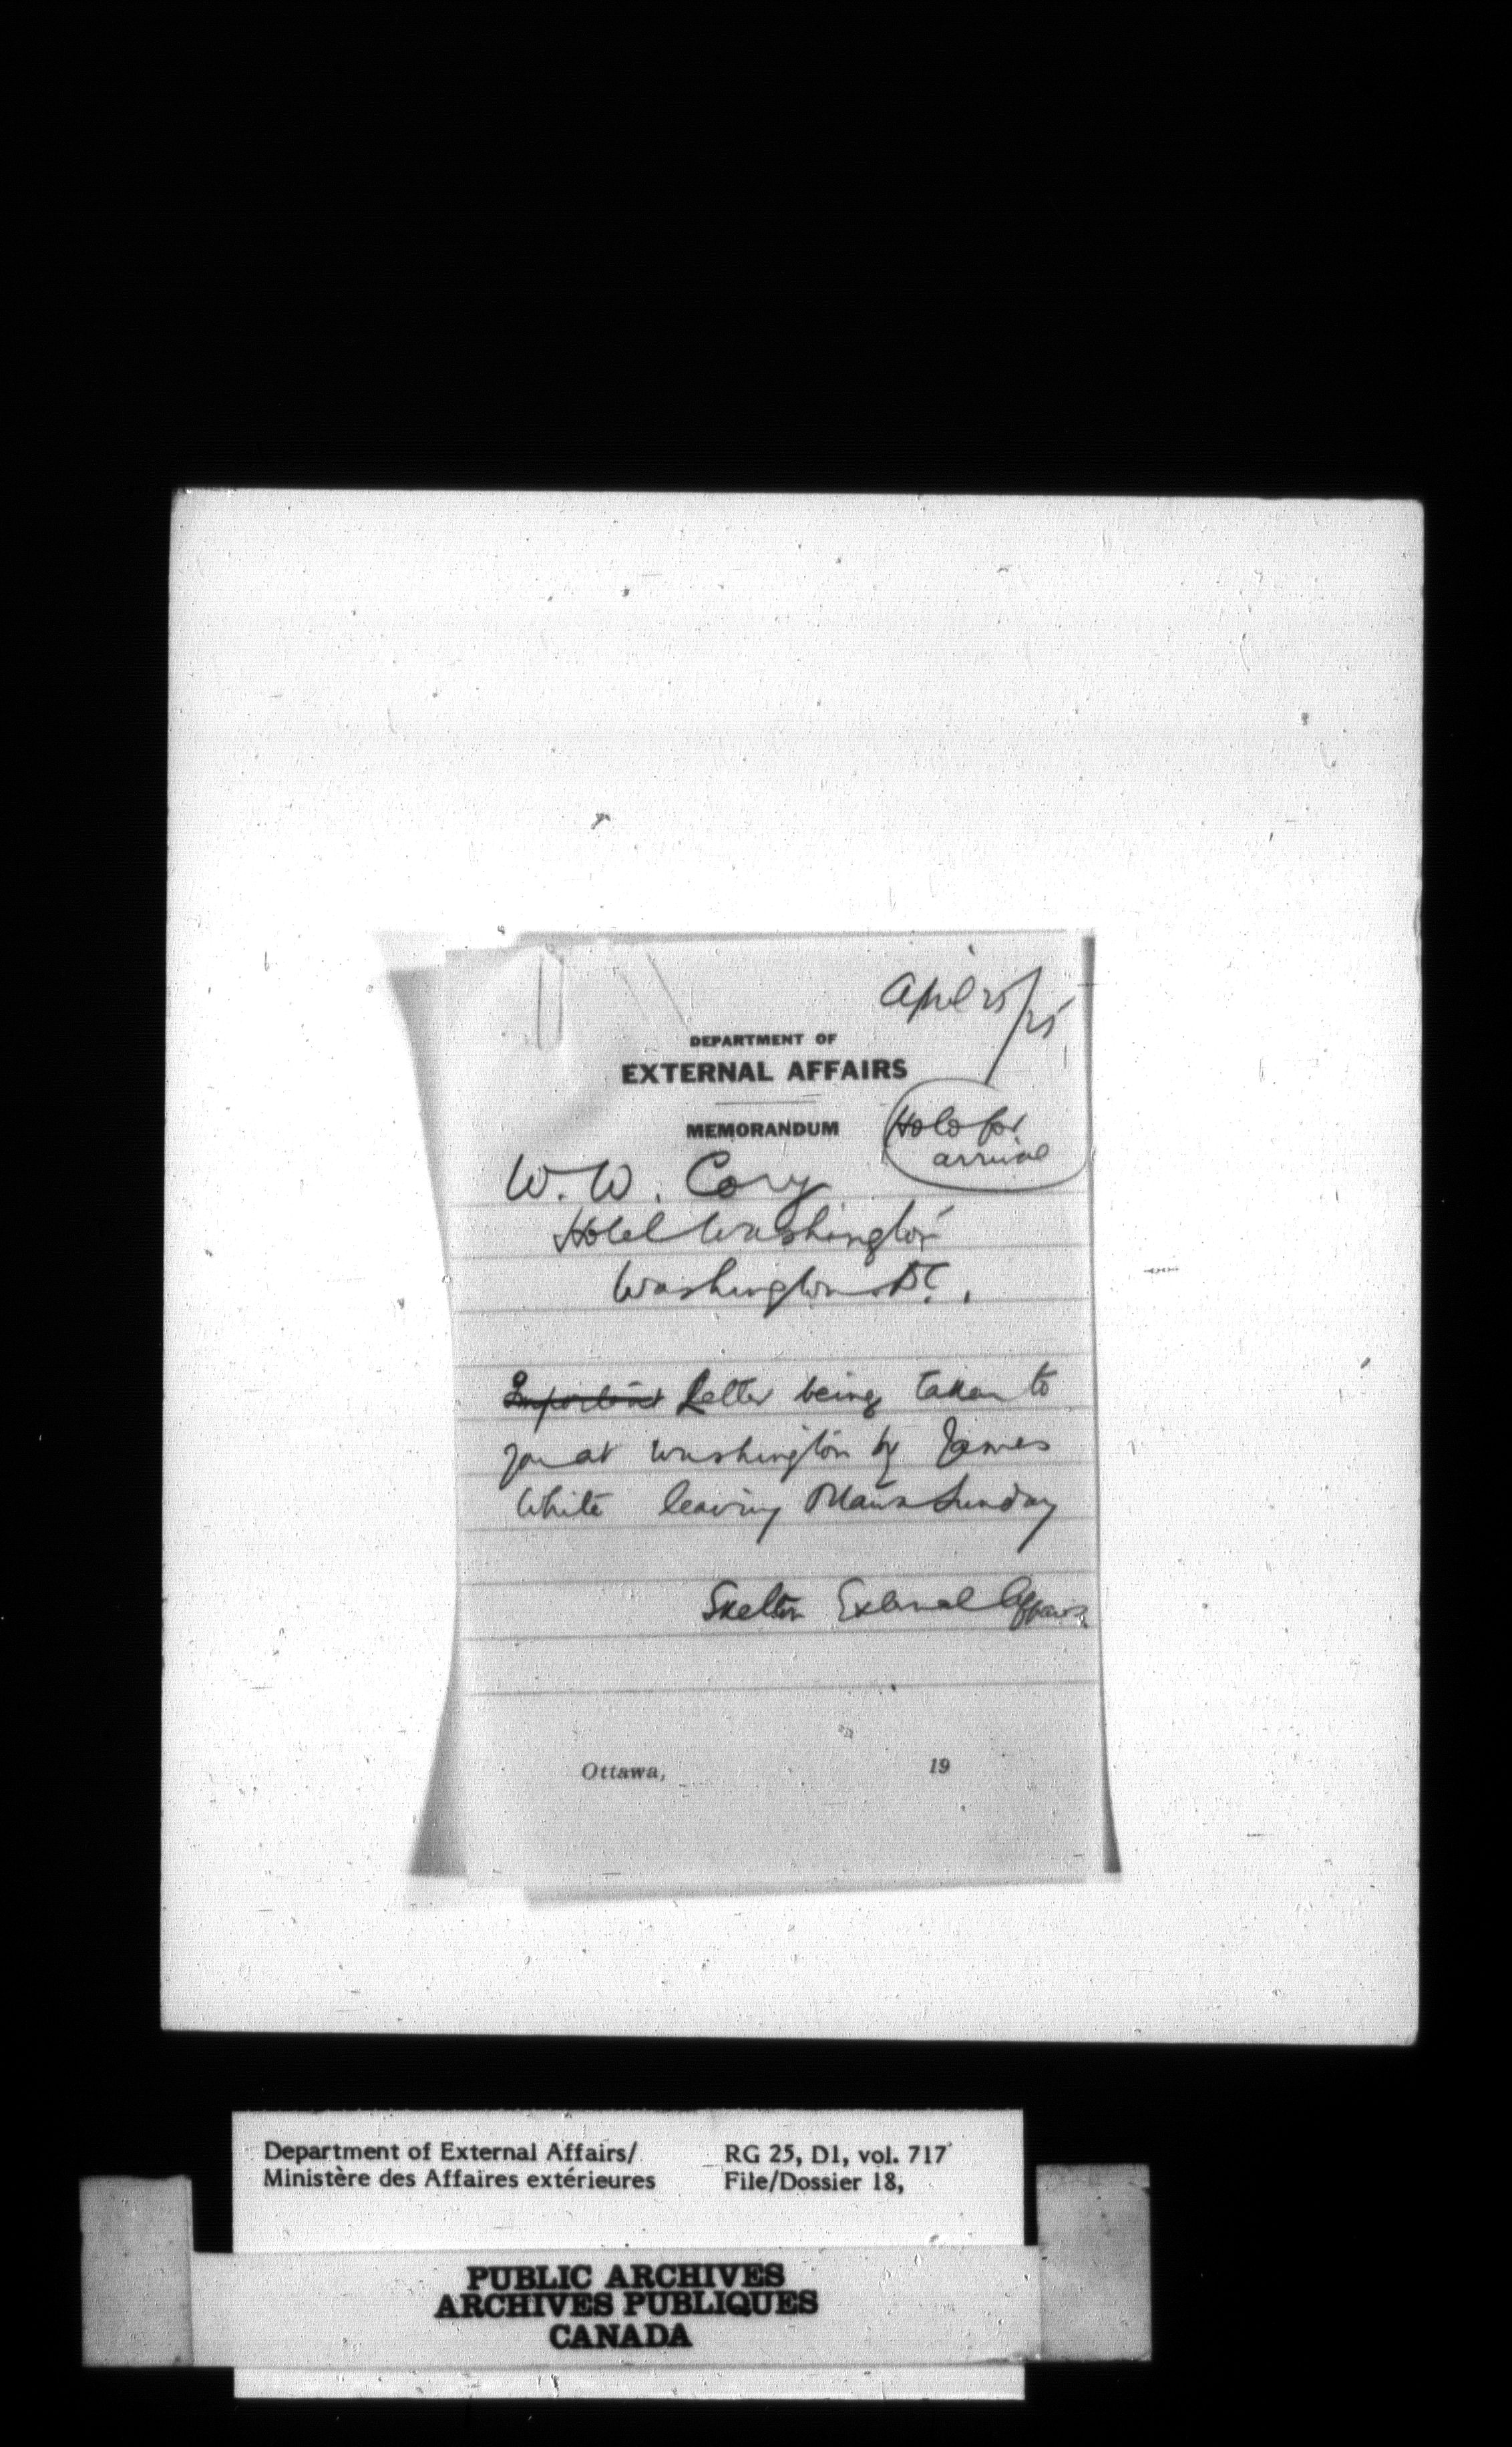 April 25/25
DEPARTMENT OF
EXTERNAL AFFAIRS
MEMORANDUM
Hold for
arrival
W. W. Cory
Hotel Washington
Washington D.C.
Important Letter being taken to
you at Washington by James
White leaving Ottawa Sunday
Skelton External Affairs
Ottawa, 19
Department of External Affairs/
Ministère des Affaires extérieures
RG 25, D1, vol. 717
File/Dossier 18,
PUBLIC ARCHIVES
ARCHIVES PUBLIQUES
CANADA